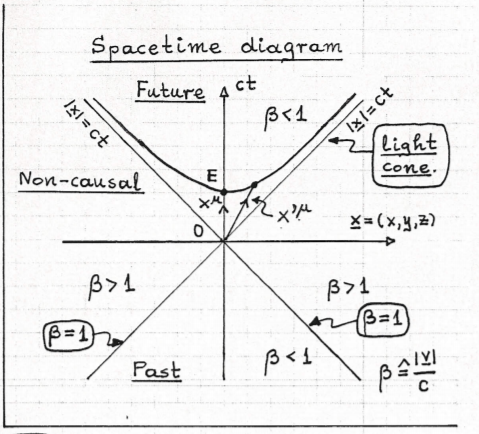 Spacetime diagram
Future
ct
|x|=ct
β<1
|x|=ct
light
cone.
E
Non-causal
x^μ
x'^μ
0
x=(x,y,z)
β>1
β>1
β=1
β=1
β<1
Past
β≙|v|/c